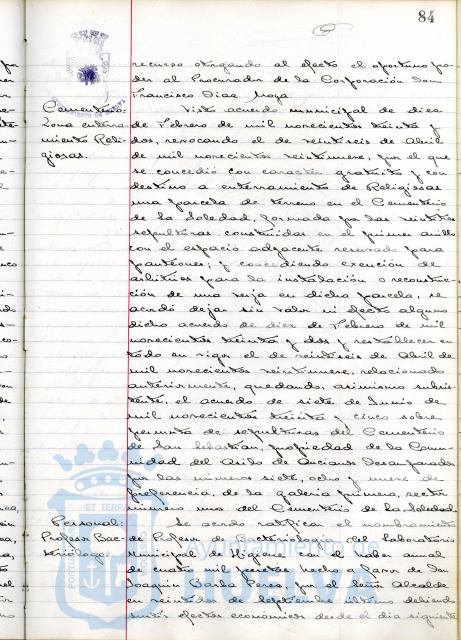 84
recurso otorgando al efecto el oportuno po-
der al Procurador de la Corporación Don
Francisco Diaz Moya.
Cementerio:
Zona enterra-
miento Reli-
giosas.
Visto acuerdo municipal de diez
de Febrero de mil novecientos treinta y
dos, revocando el de veintiseis de Abril
de mil novecientos veintinueve, por el que
se concedió con caracter gratuito y con
destino a enterramiento de Religiosas
una parcela de terreno en el Cementerio
de la Soledad, formada por las veintitres
sepulturas construidas en el primer anillo
con el espacio adyacente reservado para
panteones; y concediendo exención de
arbitrios para la instalación o reconstruc-
ción de una verja en dicha parcela, se
acordó dejar sin valor ni efecto alguno
dicho acuerdo de diez de Febrero de mil
novecientos treinta y dos y restablecer en
todo su vigor el de veintiseis de Abril de
mil novecientos veintinueve, relacionado
anteriormente, quedando, asimismo subsis-
tente, el acuerdo de siete de Junio de
mil novecientos treinta y cinco sobre
permuta de sepulturas del Cementerio
de San Sebastian, propiedad de la Comu-
nidad del Asilo de Ancianos Desamparados
por las números siete, ocho y nueve de
preferencia, de la galeria primera, sector
número uno del Cementerio de la Soledad.
Personal:
Profesor Bac-
teriólogo
Se acordó ratificar el nombramiento
de Profesor de Bacteriologia del Laboratorio
Municipal de Higiene con el haber anual
de cuatro mil pesetas hecho a favor de Don
Joaquin Barba Perea por el Señor Alcalde
en veintidos de Septiembre último debiendo
surtir efectos económicos desde el dia siguiente
Ayuntamiento de
HUELVA